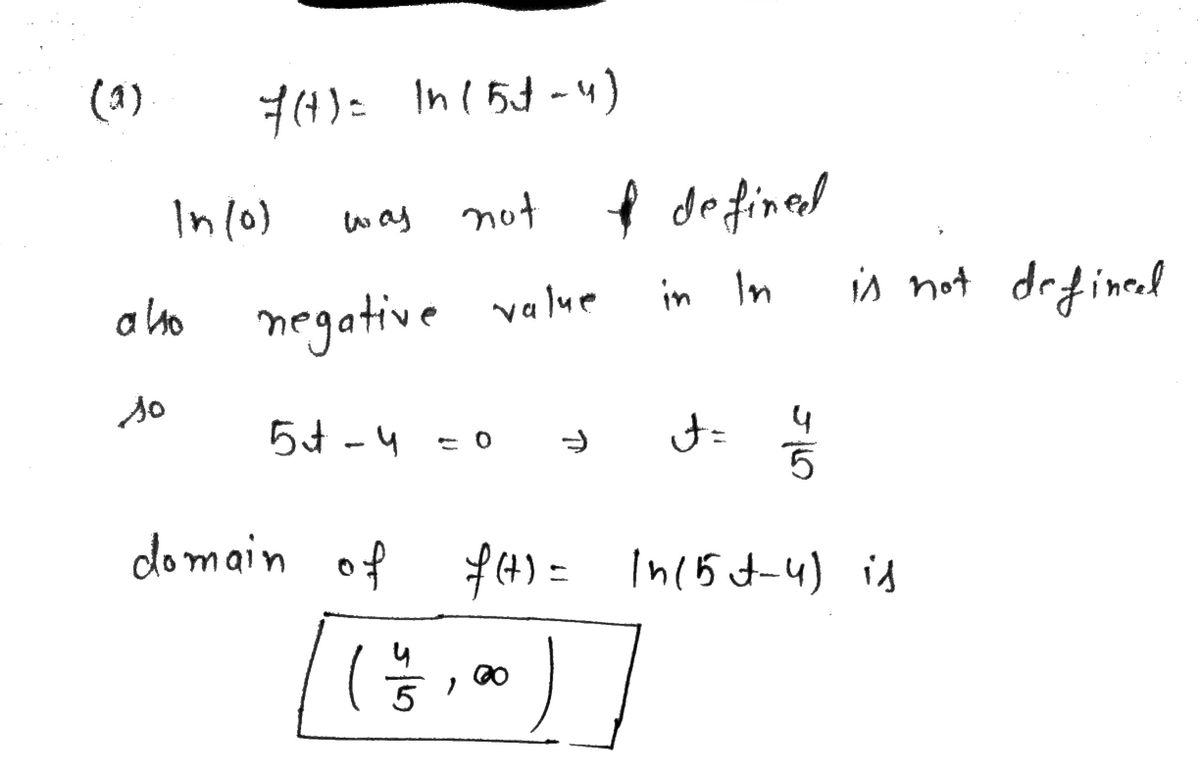 (a) f(t) = ln(5t-4)
ln(0) was not defined
also negative value in ln is not defined
so 5t-4 = 0 ⇒ t = 4/5
domain of f(t) = ln(5t-4) is
(4/5, ∞)